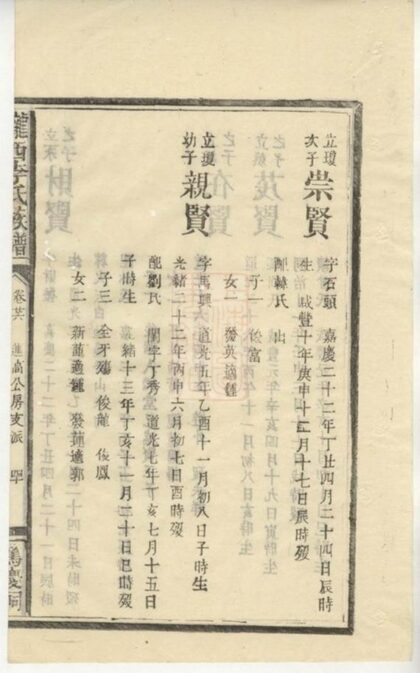 立瓊次子 崇賢
字石頭 嘉慶二十二年丁丑四月二十四日辰時
生 咸豐十年庚申十二月十七日辰時歿
配韓氏 山
子一 俊富
女一 發英適鍾
立瓊幼子 親賢
字馬興 道光五年乙酉十一月初八日子時生
光緒二十二年丙申六月初七日酉時歿
配劉氏 閨字丁秀 道光七年丁亥七月十五日
子時生 光緒十三年丁亥十一月二十日巳時歿
子三 全牙殤 俊龍 俊鳳
女二 新蓮適鍾 發蓮適郭
隴西李氏族譜
卷廿六 進高公房支派